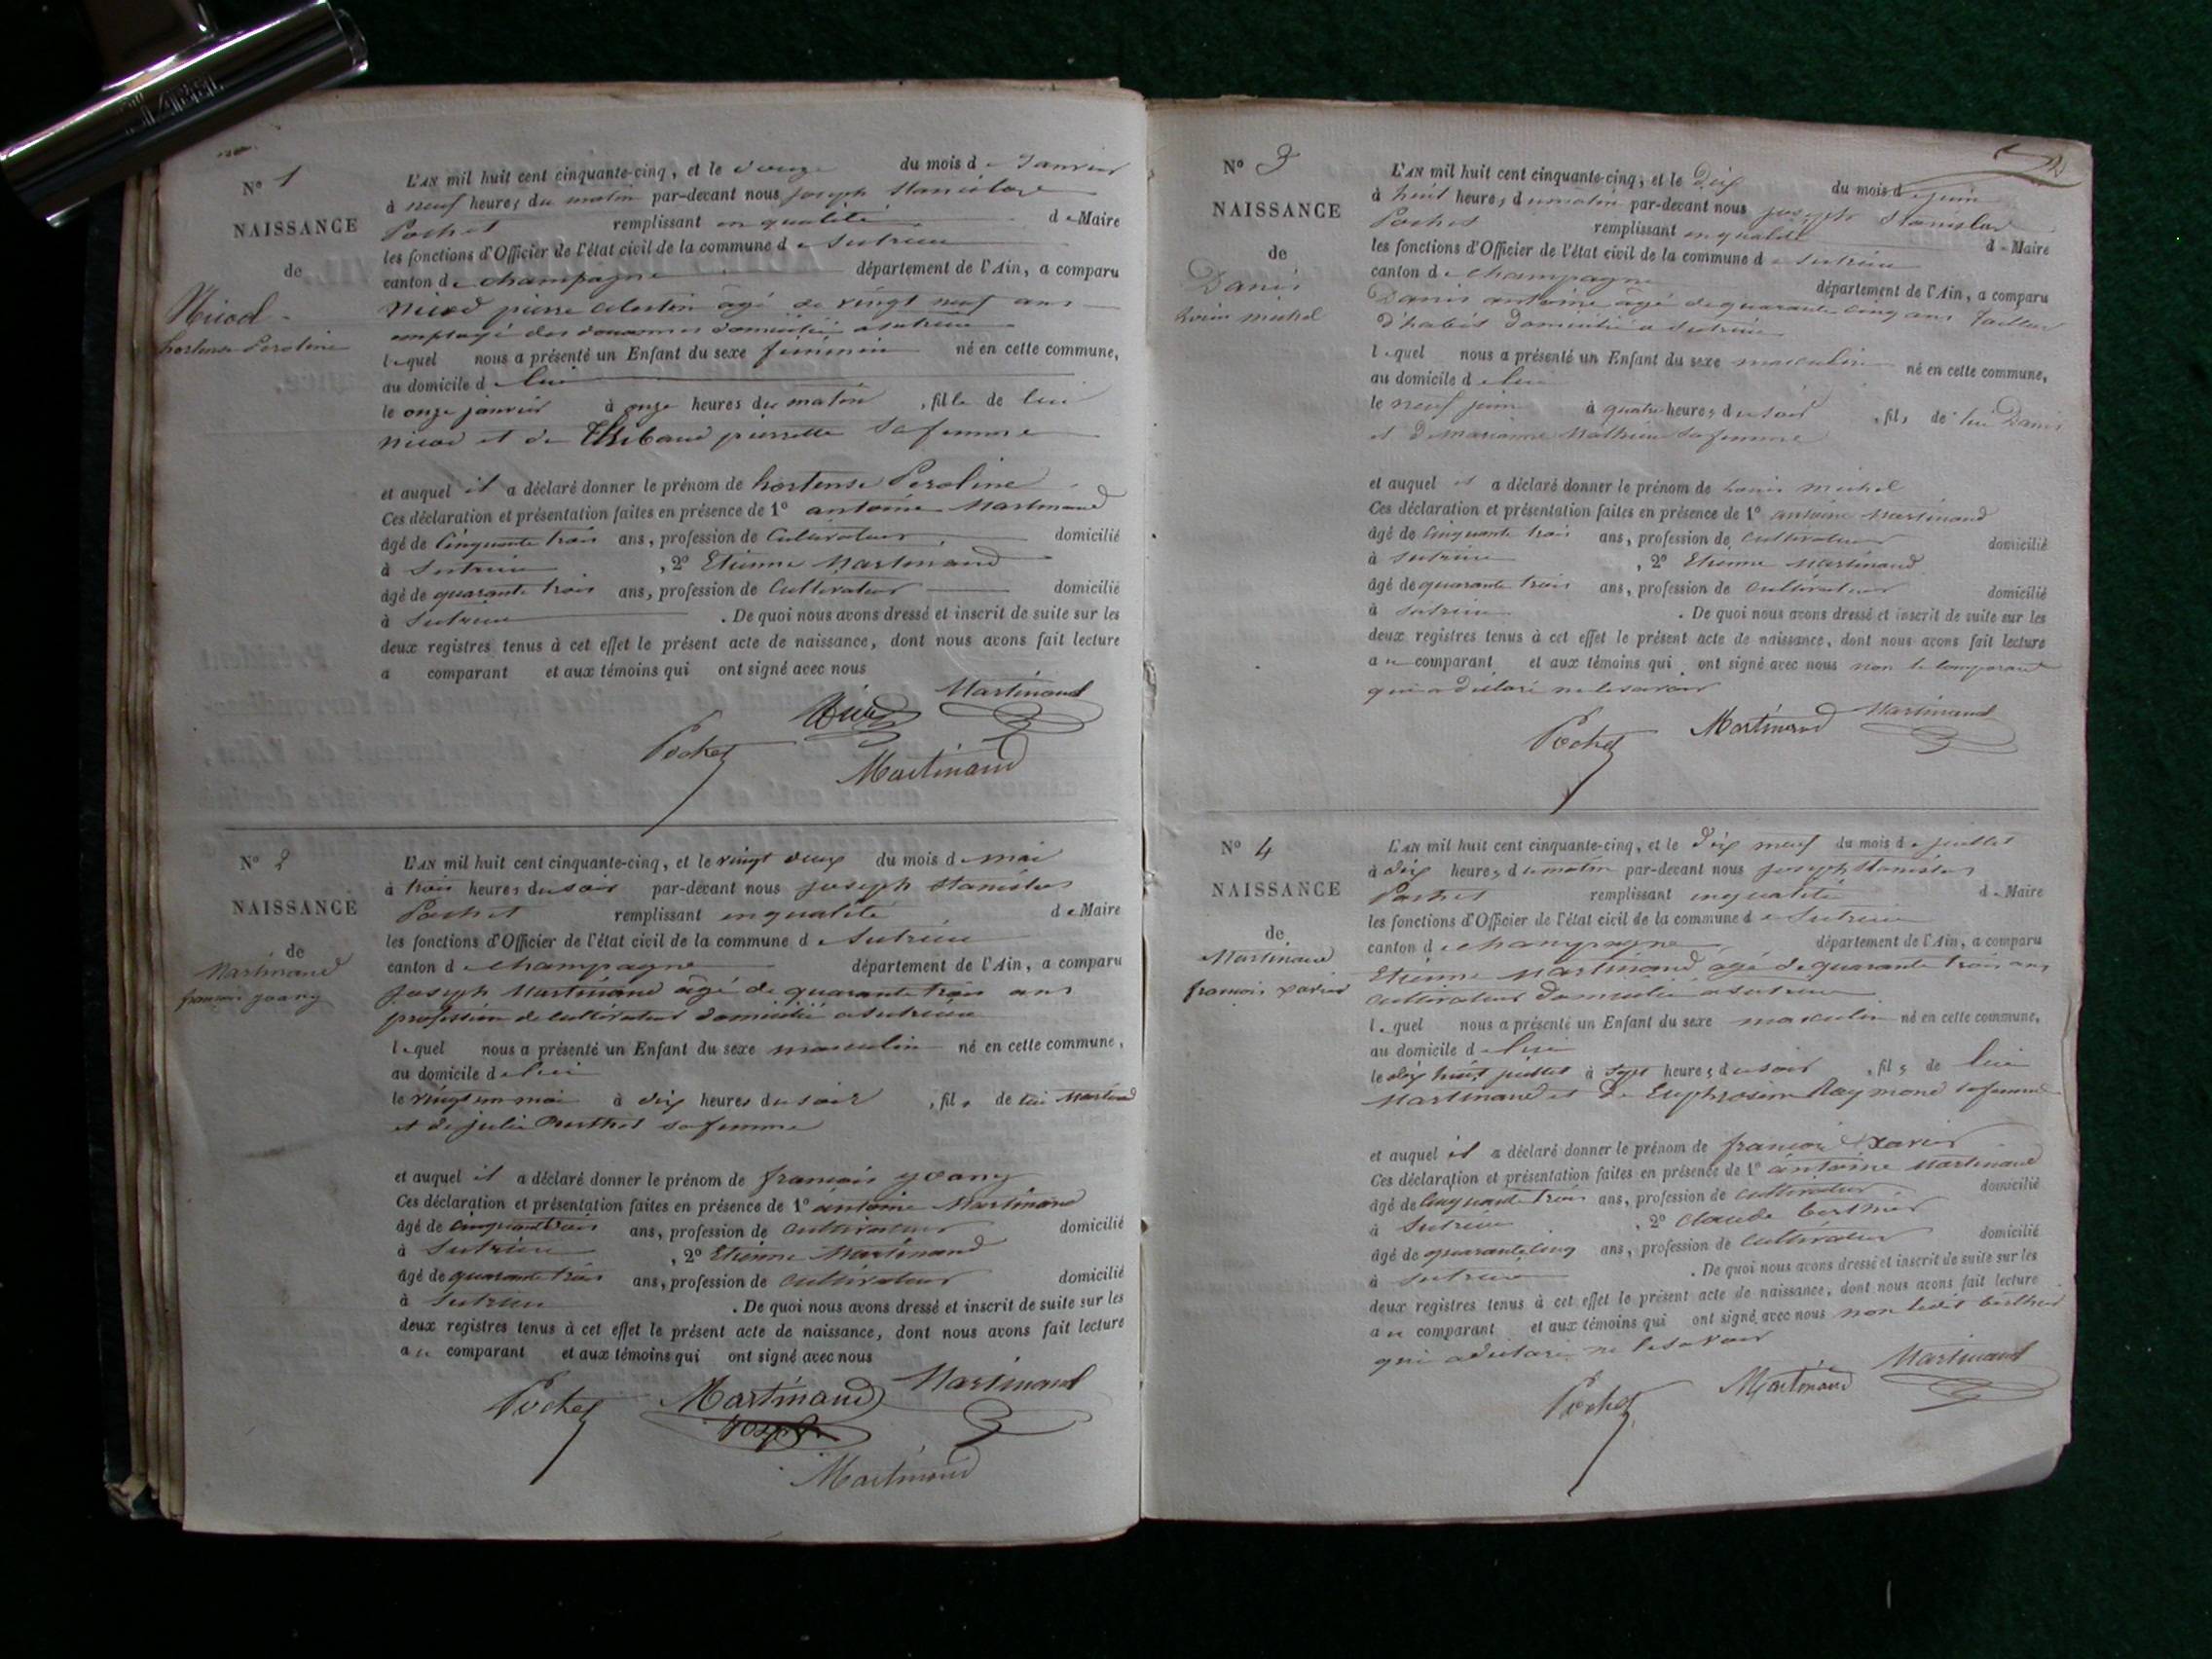 N° 1
NAISSANCE
de
Nicod
hortense Peroline
L'AN mil huit cent cinquante-cinq, et le douze du mois de Janvier
à neuf heures du matin par-devant nous joseph Stanislas
Pochet remplissant en qualité de Maire
les fonctions d'Officier de l'état civil de la commune de Sutrieu
canton de champagne département de l'Ain, a comparu
nicod pierre celestin âgé de vingt neuf ans
employé des douannes domicilié a sutrieu
lequel nous a présenté un Enfant du sexe féminin né en cette commune,
au domicile de lui
le onze janvier à onze heures du matin , fille de lui
nicod et de Thibaud pierrette sa femme
et auquel il a déclaré donner le prénom de hortense Peroline
Ces déclaration et présentation faites en présence de 1° antoine Martinand
âgé de Cinquante trois ans, profession de Cultivateur domicilié
à Sutrieu , 2° Etienne Martinand
âgé de quarante trois ans, profession de Cultivateur domicilié
à Sutrieu . De quoi nous avons dressé et inscrit de suite sur les
deux registres tenus à cet effet le présent acte de naissance, dont nous avons fait lecture
a comparant et aux témoins qui ont signé avec nous
Nicod Martinand
Pochet Martinand
N° 2
NAISSANCE
de
Martinand
francois joany
L'AN mil huit cent cinquante-cinq, et le vingt deux du mois de mai
à trois heures du soir par-devant nous joseph Stanislas
Pochet remplissant en qualité de Maire
les fonctions d'Officier de l'état civil de la commune de Sutrieu
canton de champagne département de l'Ain, a comparu
joseph Martinand âgé de quarante trois ans
profession de cultivateur domicilié a sutrieu
lequel nous a présenté un Enfant du sexe masculin né en cette commune,
au domicile de lui
le vingt un mai à dix heures du soir , fils de lui Martinand
et de julie Berthet sa femme
et auquel il a déclaré donner le prénom de francois joany
Ces déclaration et présentation faites en présence de 1° antoine Martinand
âgé de cinquante trois ans, profession de cultivateur domicilié
à Sutrieu , 2° Etienne Martinand
âgé de quarante trois ans, profession de cultivateur domicilié
à Sutrieu . De quoi nous avons dressé et inscrit de suite sur les
deux registres tenus à cet effet le présent acte de naissance, dont nous avons fait lecture
au comparant et aux témoins qui ont signé avec nous
Pochet Martinand Martinand
Joseph
Martinand
N° 3
NAISSANCE
de
Danis
louis michel
L'AN mil huit cent cinquante-cinq, et le Dix du mois de juin
à huit heures du matin par-devant nous joseph Stanislas
Pochet remplissant en qualité de Maire
les fonctions d'Officier de l'état civil de la commune de Sutrieu
canton de champagne département de l'Ain, a comparu
Danis antoine âgé de quarante cinq ans Tailleur
d'habis domicilié a sutrieu
lequel nous a présenté un Enfant du sexe masculin né en cette commune,
au domicile de lui
le neuf juin à quatre heures du soir , fils de lui Danis
et de marianne Mathieu sa femme
et auquel il a déclaré donner le prénom de louis michel
Ces déclaration et présentation faites en présence de 1° antoine Martinand
âgé de Cinquante trois ans, profession de cultivateur domicilié
à Sutrieu , 2° Etienne Martinand
âgé de quarante trois ans, profession de cultivateur domicilié
à Sutrieu . De quoi nous avons dressé et inscrit de suite sur les
deux registres tenus à cet effet le présent acte de naissance, dont nous avons fait lecture
au comparant et aux témoins qui ont signé avec nous non le comparant
qui a déclaré ne le savoir
Pochet Martinand Martinand
N° 4
NAISSANCE
de
Martinand
francois xavier
L'AN mil huit cent cinquante-cinq, et le dix neuf du mois de juillet
à dix heures du matin par-devant nous joseph Stanislas
Pochet remplissant en qualité de Maire
les fonctions d'Officier de l'état civil de la commune de Sutrieu
canton de champagne département de l'Ain, a comparu
Etienne Martinand agé de quarante trois ans
cultivateur domicilié a sutrieu
lequel nous a présenté un Enfant du sexe masculin né en cette commune,
au domicile de lui
le dix huit juillet à sept heures du soir , fils de lui
Martinand et de Euphrosine Raymond sa femme
et auquel il a déclaré donner le prénom de francois xavier
Ces déclaration et présentation faites en présence de 1° antoine Martinand
âgé de Cinquante trois ans, profession de cultivateur domicilié
à Sutrieu , 2° claude berthier
âgé de quarante cinq ans, profession de cultivateur domicilié
à sutrieu . De quoi nous avons dressé et inscrit de suite sur les
deux registres tenus à cet effet le présent acte de naissance, dont nous avons fait lecture
au comparant et aux témoins qui ont signé avec nous non ledit berthier
qui a déclaré ne le savoir
Pochet Martinand Martinand